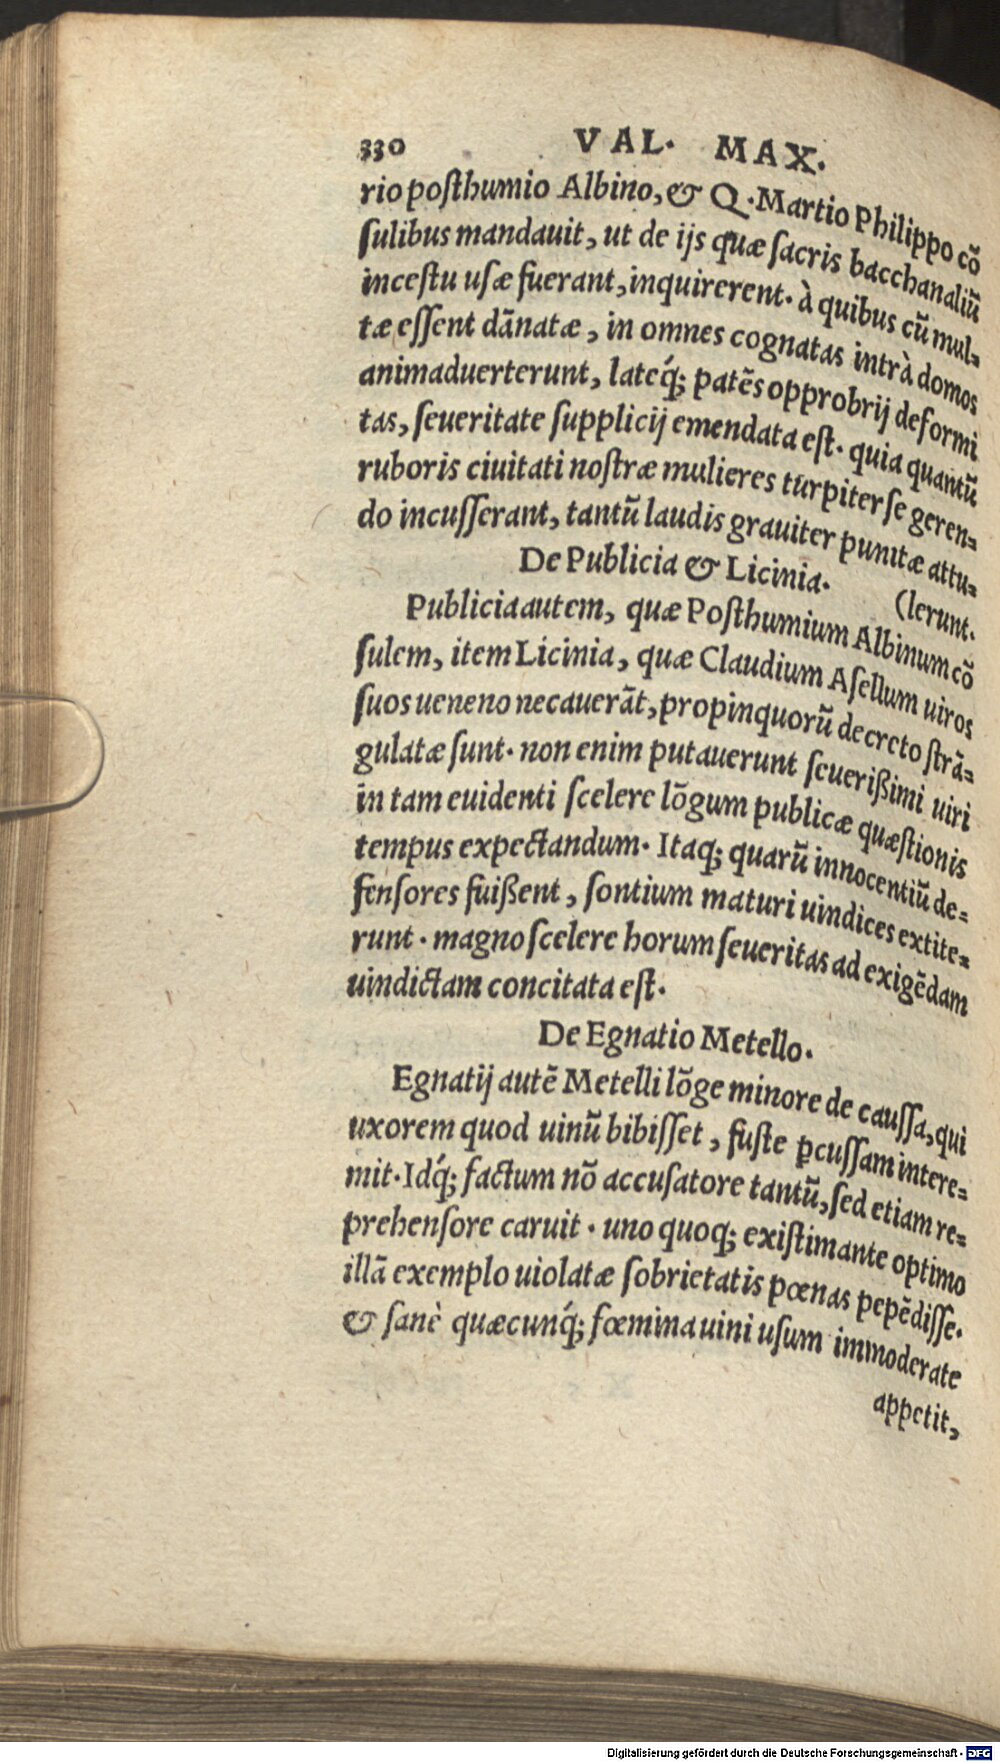 330 VAL. MAX.
rio posthumio Albino, & Q. Martio Philippo cō
sulibus mandauit, ut de ijs quæ sacris bacchanaliū
incestu usæ fuerant, inquirerent. à quibus cū mul-
tæ essent dānatæ, in omnes cognatas intrà domos
animaduerterunt, lateq́; patēs opprobrij deformi
tas, seueritate supplicij emendata est. quia quantū
ruboris ciuitati nostræ mulieres turpiter se geren-
do incusserant, tantū laudis grauiter punitæ attu-
De Publicia & Licinia. (lerunt.
Publicia autem, quæ Posthumium Albinum cō
sulem, item Licinia, quæ Claudium Asellum uiros
suos ueneno necauerāt, propinquorū decreto strā-
gulatæ sunt. non enim putauerunt seuerißimi uiri
in tam euidenti scelere lōgum publicæ quæstionis
tempus expectandum. Itaq; quarū innocentiū de-
fensores fuißent, sontium maturi uindices extite-
runt. magno scelere horum seueritas ad exigēdam
uindictam concitata est.
De Egnatio Metello.
Egnatij autē Metelli lōge minore de caussa, qui
uxorem quod uinū bibisset, fuste ꝑcussam intere-
mit. Idq́; factum nō accusatore tantū, sed etiam re-
prehensore caruit. uno quoq; existimante optimo
illā exemplo uiolatæ sobrietatis pœnas pepēdisse.
& sanè quæcunq́; fœmina uini usum immoderate
appetit,
Digitalisierung gefördert durch die Deutsche Forschungsgemeinschaft - DFG